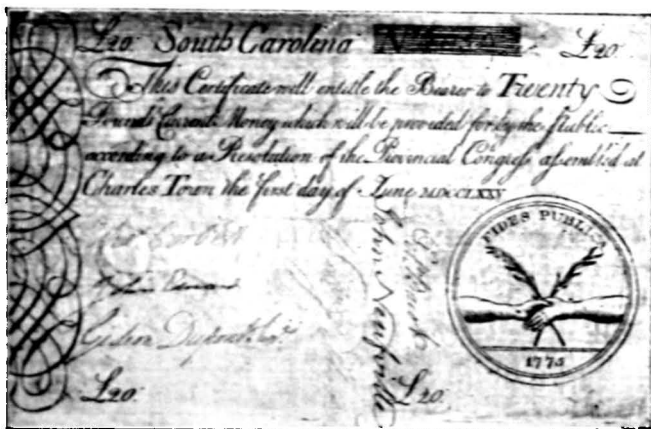 £20. South Carolina £20.
This Certificate will entitle the Bearer to Twenty
Pounds Current Money which will be provided for by the Public
according to a Resolution of the Provincial Congress assembled at
Charles Town the first day of June MDCCLXXV
FIDES PUBLICA
1775
John Neufville
£20. £20.